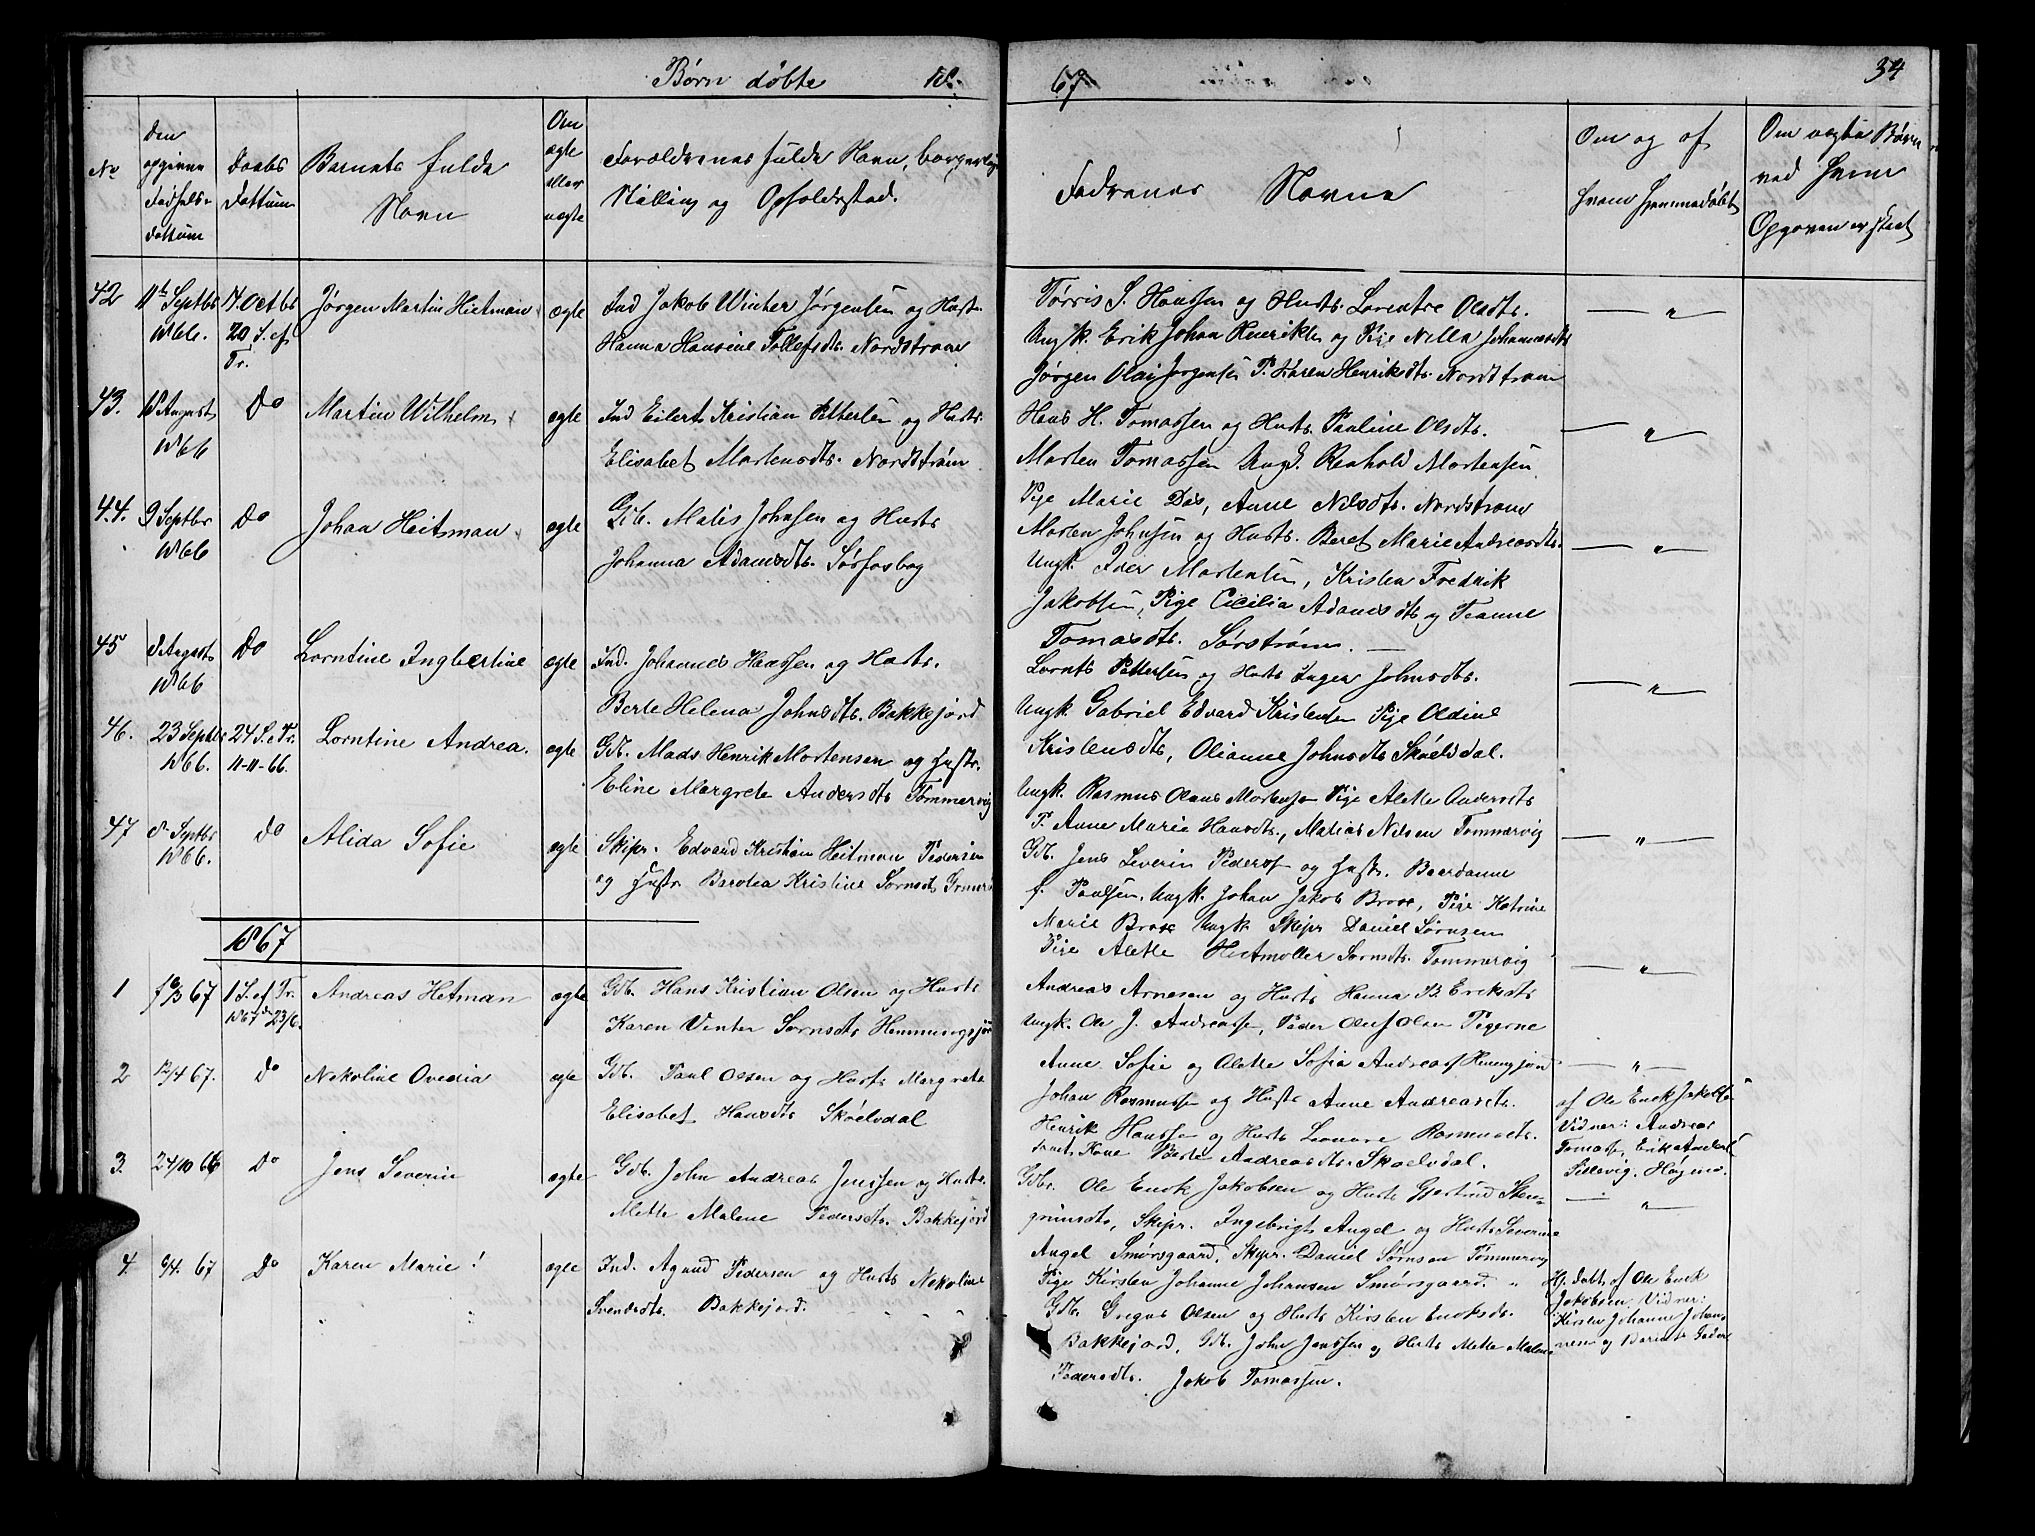 Børn døbte 18
67
34
No
Den
opgivne
Fødsels-
dattum
Daabs
Dattum
Barnets fulde
Navn
Om
ægte
eller
uægte
Forældrenes fulde Navn, borgerlige
Stilling og Opholdsstad.
Fadrenes Navne
Om og af
hvem hjemmedøbt
Om uægte Børn
ved hvem
Opgaven er skeet
42
11te Septbr
1866.
14. Octbr
20 S. ef
Tr.
Jørgen Martin Hietman
ægte
Ind Jakob Winter Jørgensen og Hust.
Hanna Hansine Tollefsdtr. Nordstrøm
Tørris S. Hanssen og Hustr. Lorentse Olsdtr.
Ungk. Erik Johan Henriks og Pige Nilla Johannesdtr
Jørgen Olai Jørgensen P. Karen Henriksdtr. Nordstrøm
— " —
43.
18 August
1866
Do
Martin Wilhelm
ægte
Ind Eilert Kristian Pettersen og Hustr.
Elisabet Mortensdtr. Nordstrøm
Hans H. Tomassen og Hustr. Pauline Olsdtr.
Morten Tomassen Ungk. Renhold Mortensen
Pige Marie Do, Anne Nilsdtr. Nordstrøm
— " —
44.
9 Septbr
1866
Do
Johan Heitman
ægte
Gdb. Matis Johnsen og Hustr
Johanna Adamsdtr. Sørfosbog
Morten Johnsen og Hustr. Beret Marie Andreasdtr.
Ungk. Peder Mortensen, Kristen Fredrik
Jakobsen, Pige Cicilia Adamsdtr og Teanne
Tomasdtr. Sørstrøm. —
— " —
45
8 August
1866
Do
Lorntine Ingbertine
ægte
Ind. Johannes Hanssen og Hustr.
Berte Helena Johnsdtr. Bakkejord
Lornts Pettersen og Hustr Inger Johnsdtr.
Ungk. Gabriel Edvard Kristensen Pige Oldine
Kristensdtr, Olianne Johnsdtr Skøelvdal.
— " —
46.
23 Septbr
1866.
24 S. e Tr.
11-11-66.
Lorntine Andrea.
ægte
Gdb. Mads Henrik Mortensen og Hustr.
Eline Margrete Andersdtr Tømmervig
Ungk. Rasmus Olaus Mortensen Pige Alette Andersdtr
P. Anne Marie Hansdtr., Matias Nilsen Tommervig
47
8 Septbr
1866.
Do
Alida Sofie
ægte
Skipr. Edvard Kristian Heitman Pedersen
og Hustr Berotea Kristine Sørnsdtr
Gdb. Jens Severin Peders og Hustr. Beerdanne
f. Paulsen. Ungk. Johan Jakob Brox, Pige Katrine
Marie Brox Ungk Skipr Daniel Sørnsen
Pige Alette Heitmøller Sørnsdtr. Tommervig
— " —
1867
1
10/3 67
1 S. ef Tr.
1867 d 23/6.
Andreas Hetman
ægte
Gdb. Hans Kristian Olsen og Hustr
Karen Vinter Sørnsdtr Hemmingsjor
Andreas Arnesen og Hustr Hanna B. Eriksdtr
Ungk. Ole J. Andreass, Peder Oluf Olsen Pigerne
Anne Sofie og Alette Sofia Andreas Hemingjord
— " —
2
12/4 67.
Do
Nekoline Ovedia
ægte
Gdb. Paul Olsen og Hustr Margrete
Elisabet Hansdtr Skøelvdal
Johan Rasmussen og Hustr Anne Andreasdtr.
Henrik Hanssen og Hustr Leonore Rasmusdtr.
samt Kone Berte Andreasdtr Skøelvdal.
— " —
3.
24/10 66
Do
Jens Severin
ægte
Gdb. John Andreas Jenssen og Hustr.
Mette Malene Pedersdtr. Bakkejord
Gdbr. Ole Enok Jakobsen og Hustr Gjertrud Sten-
grimsdtr, Skipr. Ingebrigt Angel og Hustr Severine
Angel Smørsgaard, Skipr. Daniel Sørnsen Tømmervig
Pige Kirsten Johanne Johansen Smørsgaard. "
af Ole Enok Jakobsen
Vidner: Andreas
Tomass, Erik Anders
— " —
4.
9/4. 67
Do
Karen Marie!
ægte
Ind. Agund Pedersen og Hustr Nekoline
Svendsdtr. Bakkejord.
Gdb. Gregus Olsen og Hustr Kirsten Enoksdtr.
Bakkejord, Gdb. John Jenssen og Hustr Mette Malene
Pedersdtr. Jakob Tomassen.
Hj. døbt af Ole Enok
Jakobsen Vidner:
Kirsten Johanne Johan-
nesen og Berendt Peder